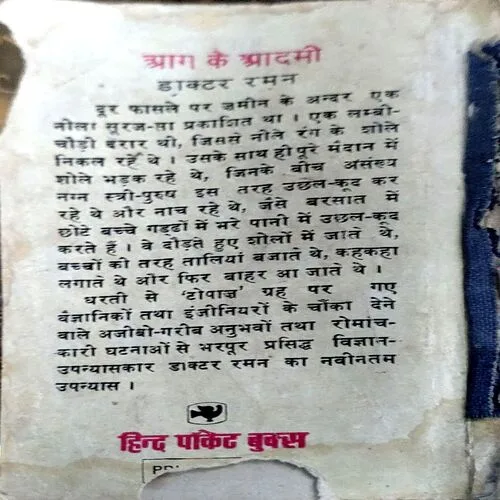 आग के आदमी
डाक्टर रमन
दूर फासले पर ज़मीन के अन्दर एक
नीला सूरज-सा प्रकाशित था। एक लम्बी-
चौड़ी दरार थी, जिससे नीले रंग के शोले
निकल रहे थे। उसके साथ ही पूरे मैदान में
शोले भड़क रहे थे, जिनके बीच असंख्य
नग्न स्त्री-पुरुष इस तरह उछल-कूद कर
रहे थे और नाच रहे थे, जैसे बरसात में
छोटे बच्चे गड्ढों में भरे पानी में उछल-कूद
करते हैं। वे दौड़ते हुए शोलों में जाते थे,
बच्चों की तरह तालियां बजाते थे, कहकहा
लगाते थे और फिर बाहर आ जाते थे।
धरती से 'टोपाज़' ग्रह पर गए
वैज्ञानिकों तथा इंजीनियरों के चौंका देने
वाले अजीबो-गरीब अनुभवों तथा रोमांच-
कारी घटनाओं से भरपूर प्रसिद्ध विज्ञान-
उपन्यासकार डाक्टर रमन का नवीनतम
उपन्यास।
हिन्द पॉकेट बुक्स